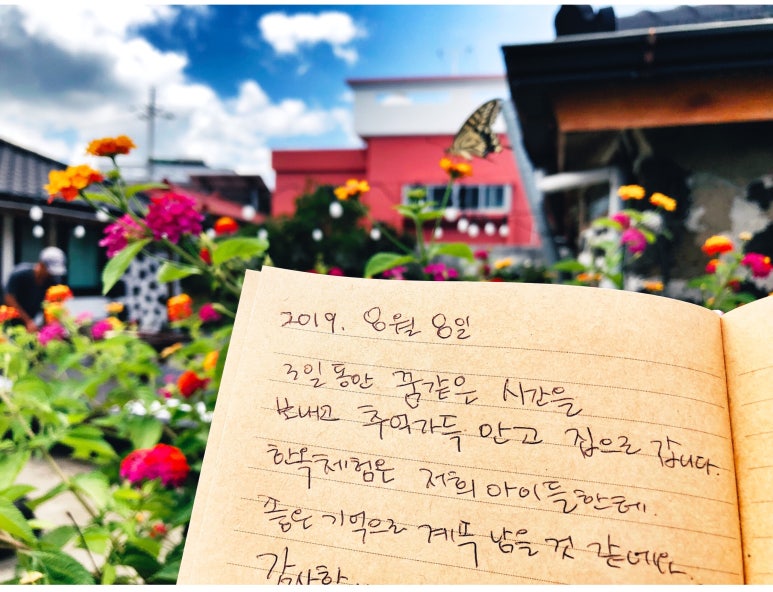 2019. 8월 8일
3일동안 꿈같은 시간을
보내고 추억가득 안고 집으로 갑니다.
한옥체험은 저희 아이들한테
좋은 기억으로 계속 남을 것 같네요.
감사합